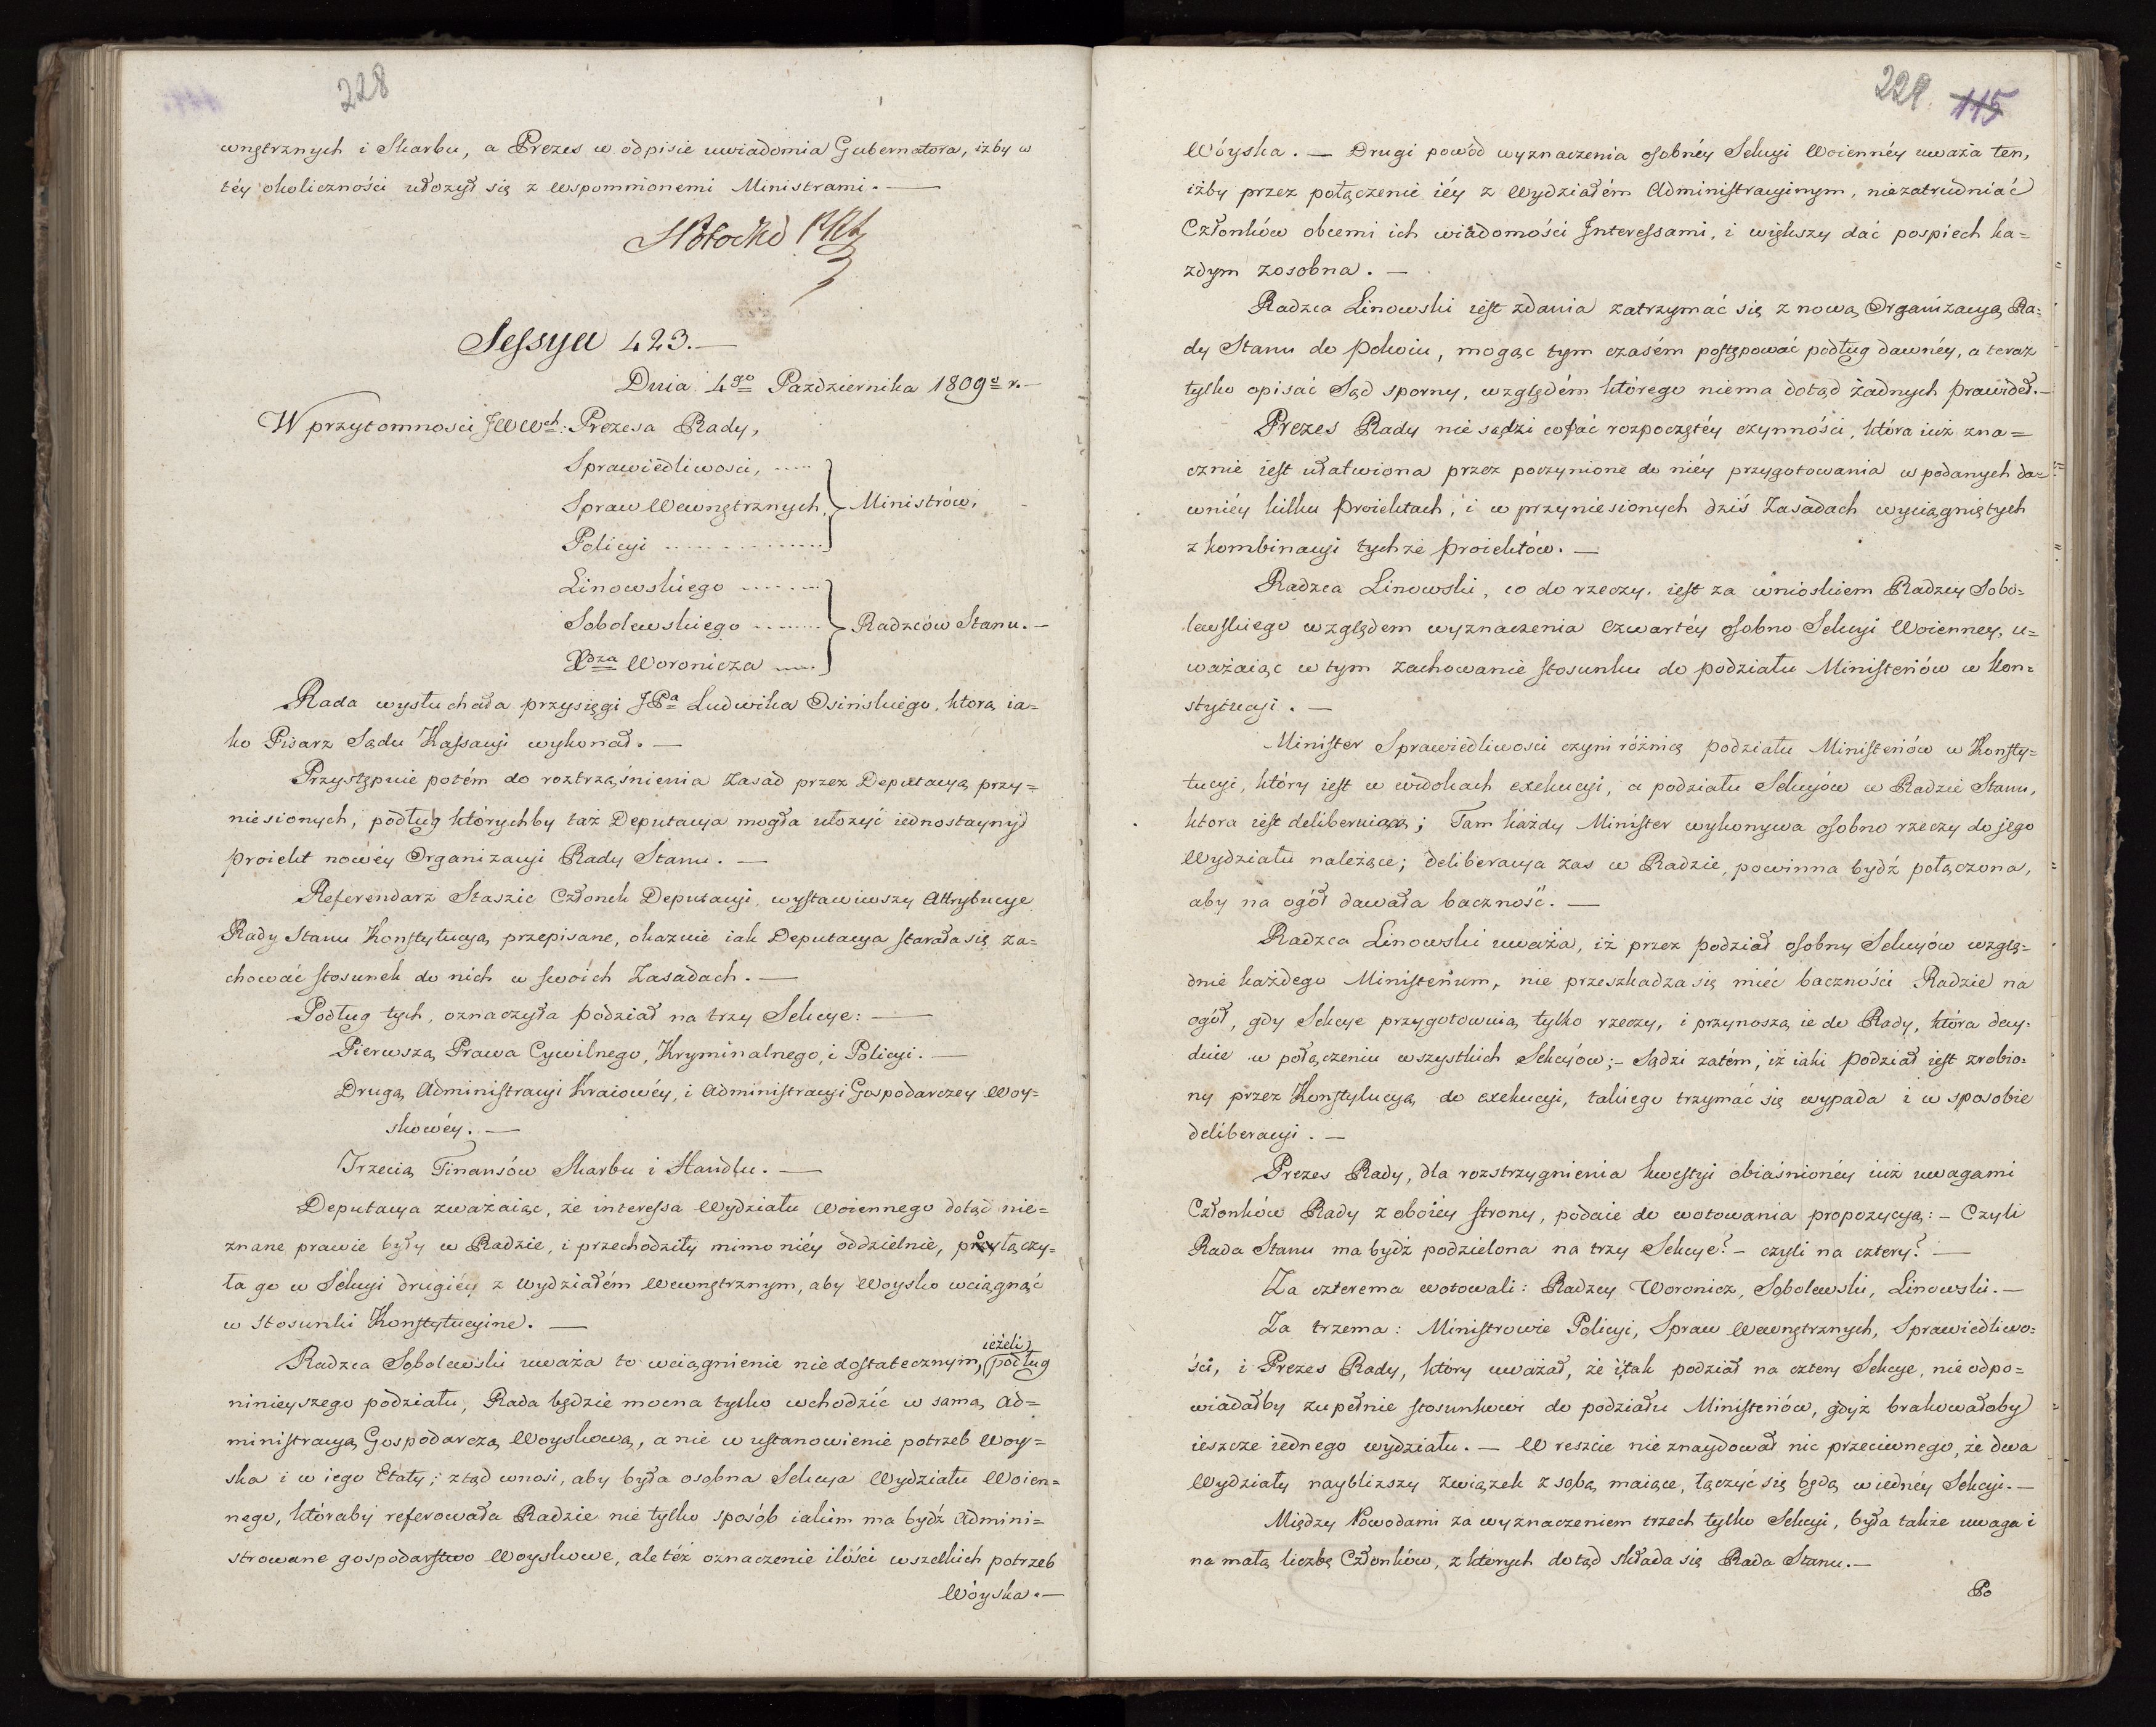 228
wnętrznych i Skarbu, a Prezes w odpisie uwiadomia Gubernatora, izby w
téy okoliczności ułozył się z wspomnionemi Ministrami. —
Sessya 423. —
Dnia 4go Pazdziernika 1809o r. —
W przytomnosci JWWch: Prezesa Rady,
Sprawiedliwosci, .....
Spraw Wewnętrznych, Ministrów,
Policyi ..................
Linowskiego .........
Sobolewskiego ........ Radzców Stanu. —
Xdza Woronicza .....
Rada wysłuchała przysięgi JPa Ludwika Osińskiego, ktorą ia=
ko Pisarz Sądu Kassacyi wykonał. —
Przystępuie potém do roztrząśnienia Zasad przez Deputacyą przy=
niesionych, podług którychby taż Deputacya mogła ułozyć iednostayny
proiekt nowéy Organizacyi Rady Stanu. —
Referendarz Staszic Członek Deputacyi, wystawiwszy Attrybucye
Rady Stanu Konstytucyą przepisane, okazuie iak Deputacya starała się za=
chować stosunek do nich w swoich Zasadach. —
Podług tych, oznaczyła podział na trzy Sekcye: —
Pierwszą Prawa Cywilnego, Kryminalnego, i Policyi. —
Drugą Administracyi Kraiowéy, i Administracyi Gospodarczey Woy=
skowéy. —
Trzecią Finansów Skarbu i Handlu. —
Deputacya zważaiąc, że interessa Wydziału Woiennego dotąd nie=
znane prawie były w Radzie, i przechodziły mimo niéy oddzielnie, połączy=
ła go w Sekcyi drugiéy z Wydziałém Wewnętrznym, aby Woysko wciągnąć
w stosunki Konstytucyine. —
ieżeli
Radzca Sobolewski uważa to wciągnienie niedostatecznym, podług
ninieyszego podziału, Rada będzie mocna tylko wchodzić w samą Ad=
ministracyą Gospodarczą Woyskową, a nie w ustanowienie potrzeb Woy=
ska i w iego Etaty; ztąd wnosi, aby była osobna Sekcya Wydziału Woien=
nego, któraby referowała Radzie nie tylko sposób iakim ma bydź admini=
strowane gospodarstwo Woyskowe, ale téż oznaczenie ilości wszelkich potrzeb
Wóyska. —
229. 115
Wóyska. — Drugi powód wyznaczenia osobnéy Sekcyi Woiennéy uważa ten,
iżby przez połączenie iéy z Wydziałém Administracyinym, niezatrudniać
Członków obcemi ich wiadomości Interessami, i większy dać pospiech ka=
zdym zosobna. —
Radzca Linowski iest zdania zatrzymać się z nową Organizacyą Ra=
dy Stanu do pokoiu, mogąc tym czasém postępować podług dawnéy, a teraz
tylko opisać Sąd sporny, względém którego niema dotąd żadnych prawideł. —
Prezes Rady nie sądzi cofać rozpoczętéy czynności, która iuż zna=
cznie iest ułatwiona przez poczynione do niéy przygotowania w podanych da=
wniéy kilku proiektach, i w przyniesionych dziś Zasadach wyciągniętych
z kombinacyi tychże proiektów. —
Radzca Linowski, co do rzeczy, iest za wnioskiem Radzcy Sobo=
lewskiego względem wyznaczenia czwartéy osobno Sekcyi Woienney, u=
ważaiąc w tym zachowanie stosunku do podziału Ministeriów w Kon=
stytucyi. —
Minister Sprawiedliwosci czyni różnicę podziału Ministeriów w Konsty=
tucyi, który iest w widokach exekucyi, a podziału Sekcyów w Radzie Stanu,
ktora iest deliberuiąca; Tam każdy Minister wykonywa osobno rzeczy do jego
Wydziału należące; deliberacya zas w Radzie, powinna bydź połączona,
aby na ogół dawała baczność. —
Radzca Linowski uważa, iż przez podział osobny Sekcyów wzglę=
dnie każdego Ministerium, nie przeszkadza się mieć baczności Radzie na
ogół, gdy Sekcye przygotowuią tylko rzeczy, i przynoszą ie do Rady, która decy=
duie w połączeniu wszystkich Sekcyów; — Sądzi zatém, iż iaki podział iest zrobio=
ny przez Konstytucyą do exekucyi, takiego trzymać się wypada i w sposobie
deliberacyi. —
Prezes Rady, dla rozstrzygnienia kwestyi obiaśnionéy iuż uwagami
Członków Rady z oboiéy strony, podaie do wotowania propozycyą: — Czyli
Rada Stanu ma bydź podzielona na trzy Sekcye? — czyli na cztery? —
Za czterema wotowali: Radzcy Woronicz, Sobolewski, Linowski. —
Za trzema: Ministrowie Policyi, Spraw Wewnętrznych, Sprawiedliwo=
ści, i Prezes Rady, który uważał, że i tak podział na cztery Sekcye, nie odpo=
wiadałby zupełnie stosunkowi do podziału Ministeriów, gdyż brakowałoby
ieszcze iednego wydziału. — W reszcie nie znaydował nic przeciwnego, że dwa
Wydziały naybliższy związek z sobą maiące, łączyć się będą w iednéy Sekcyi. —
Między Powodami za wyznaczeniem trzech tylko Sekcyi, była także uwaga i
na małą liczbę Członków, z ktorych dotąd składa się Rada Stanu. —
Po